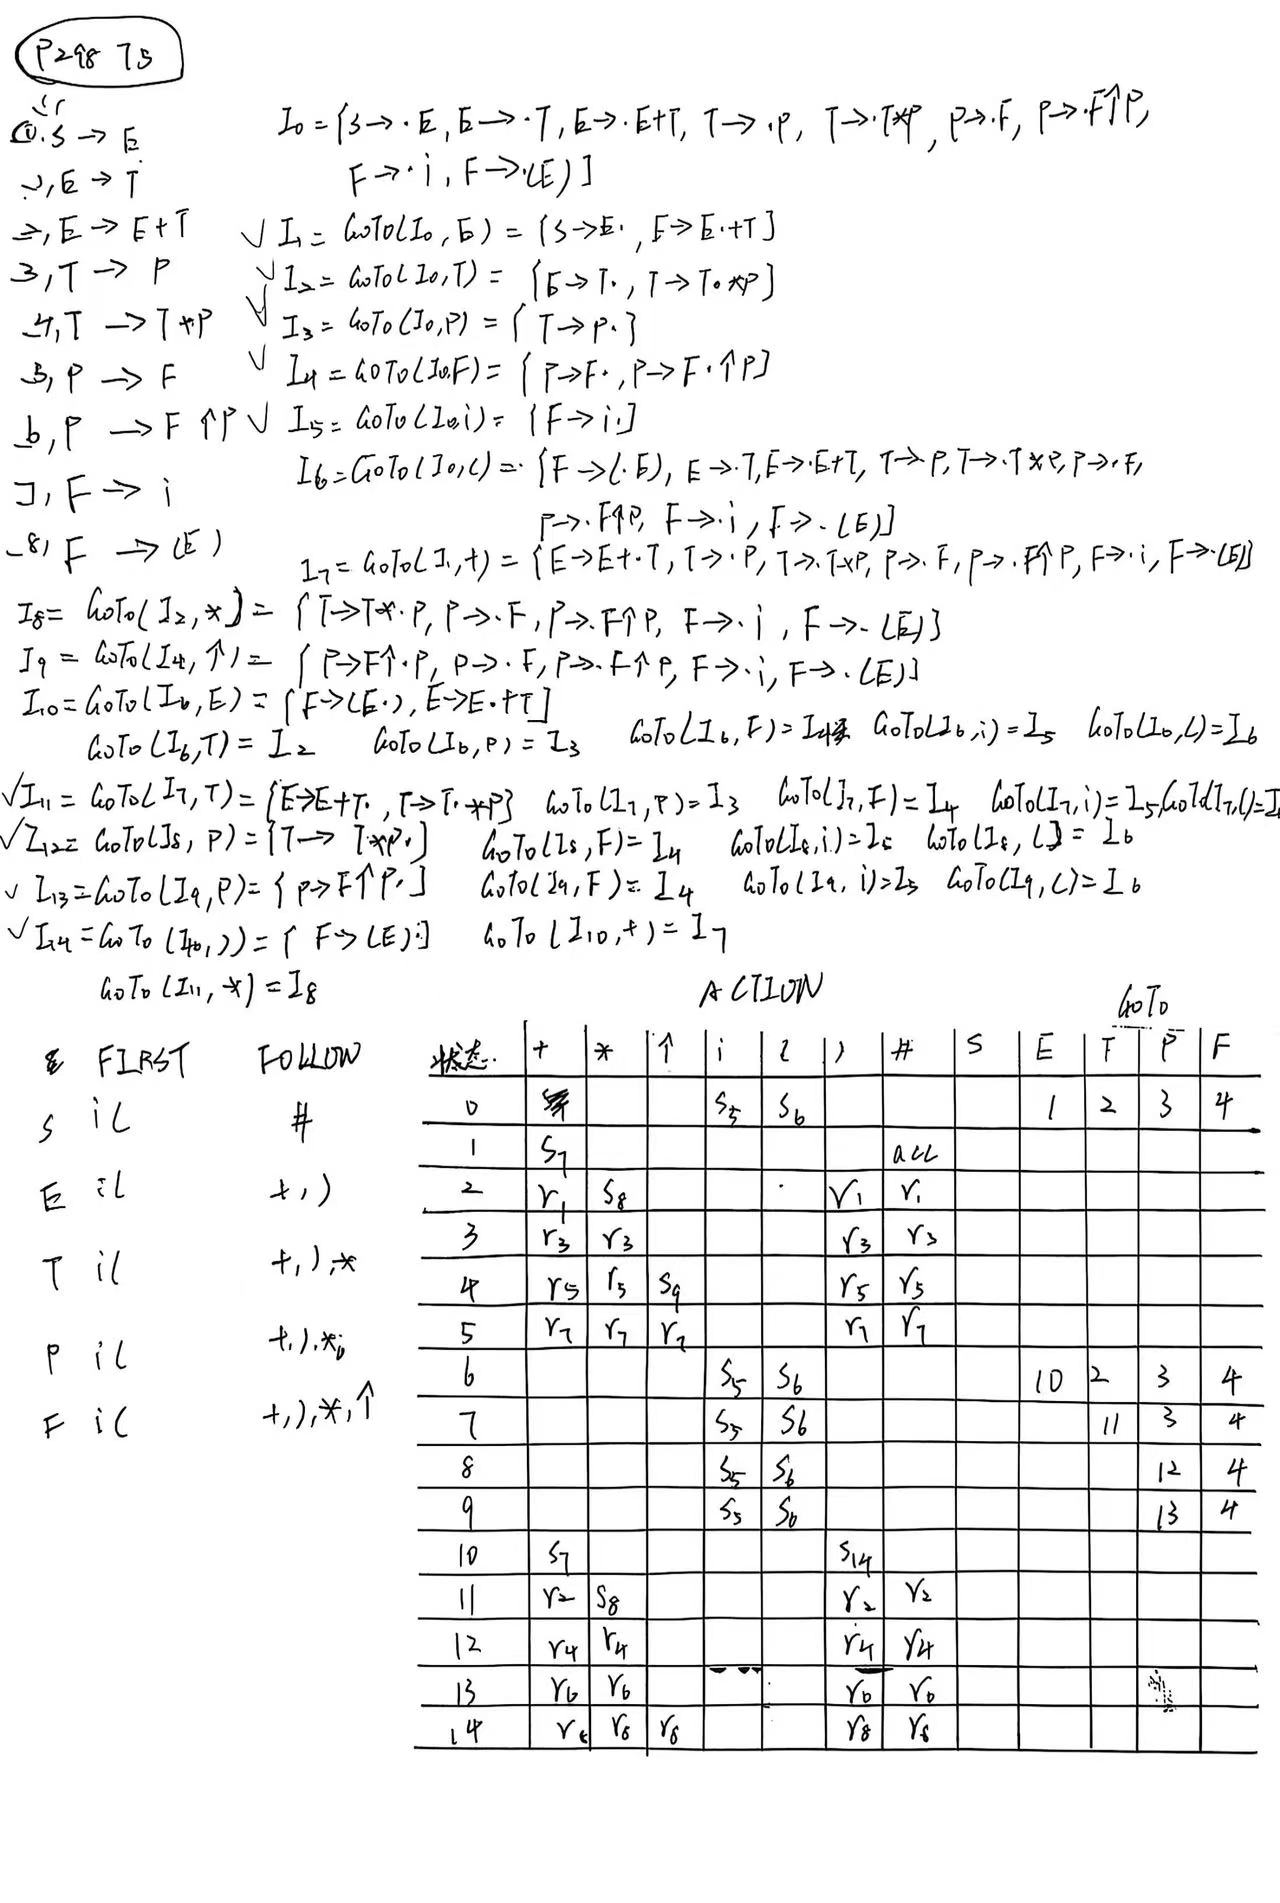 P298 T5
0. S → E
1, E → T
2, E → E+T
3, T → P
4, T → T*P
5, P → F
6, P → F↑P
7, F → i
8, F → (E)
I0 = {S→·E, E→·T, E→·E+T, T→·P, T→·T*P, P→·F, P→·F↑P,
F→·i, F→·(E)}
√ I1 = GOTO(I0, E) = {S→E·, E→E·+T}
√ I2 = GOTO(I0,T) = {E→T·, T→T·*P}
√ I3 = GOTO(I0,P) = {T→P·}
√ I4 = GOTO(I0,F) = {P→F·, P→F·↑P}
√ I5 = GOTO(I0,i) = {F→i·}
I6 = GOTO(I0,() = {F→(·E), E→·T, E→·E+T, T→·P, T→·T*P, P→·F,
P→·F↑P, F→·i, F→·(E)}
I7 = GOTO(I1,+) = {E→E+·T, T→·P, T→·T*P, P→·F, P→·F↑P, F→·i, F→·(E)}
I8 = GOTO(I2,*) = {T→T*·P, P→·F, P→·F↑P, F→·i, F→·(E)}
I9 = GOTO(I4,↑) = {P→F↑·P, P→·F, P→·F↑P, F→·i, F→·(E)}
I10 = GOTO(I6,E) = {F→(E·), E→E·+T}
GOTO(I6,T) = I2 GOTO(I6,P) = I3 GOTO(I6,F) = I4 GOTO(I6,i) = I5 GOTO(I6,() = I6
√ I11 = GOTO(I7,T) = {E→E+T·, T→T·*P} GOTO(I7,P) = I3 GOTO(I7,F) = I4 GOTO(I7,i) = I5, GOTO(I7,() = I
√ I12 = GOTO(I8, P) = {T→T*P·} GOTO(I8,F) = I4 GOTO(I8,i) = I5 GOTO(I8,() = I6
√ I13 = GOTO(I9,P) = {P→F↑P·} GOTO(I9,F) = I4 GOTO(I9,i) = I5 GOTO(I9,() = I6
√ I14 = GOTO(I10,)) = {F→(E)·} GOTO(I10,+) = I7
GOTO(I11,*) = I8
FIRST FOLLOW
S i( #
E i( +,)
T i( +,),*
P i( +,),*
F i( +,),*,↑
ACTION GOTO
状态 + * ↑ i ( ) # S E T P F
0 S5 S6 1 2 3 4
1 S7 acc
2 r1 S8 r1 r1
3 r3 r3 r3 r3
4 r5 r5 S9 r5 r5
5 r7 r7 r7 r7 r7
6 S5 S6 10 2 3 4
7 S5 S6 11 3 4
8 S5 S6 12 4
9 S5 S6 13 4
10 S7 S14
11 r2 S8 r2 r2
12 r4 r4 r4 r4
13 r6 r6 r6 r6
14 r8 r8 r8 r8 r8